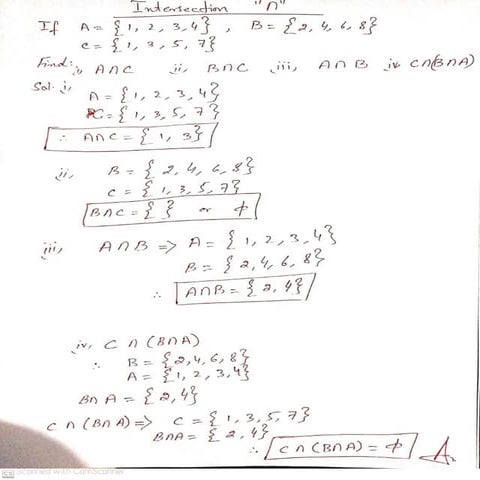 Intersection "∩"
If A = {1, 2, 3, 4} , B = {2, 4, 6, 8}
C = {1, 3, 5, 7}
Find: i, A∩C ii, B∩C iii, A∩B iv, C∩(B∩A)
Sol: i, A = {1, 2, 3, 4}
C = {1, 3, 5, 7}
∴ A∩C = {1, 3}
ii, B = {2, 4, 6, 8}
C = {1, 3, 5, 7}
B∩C = { } or ϕ
iii, A∩B => A = {1, 2, 3, 4}
B = {2, 4, 6, 8}
∴ A∩B = {2, 4}
iv, C ∩ (B∩A)
∴ B = {2, 4, 6, 8}
A = {1, 2, 3, 4}
B∩A = {2, 4}
C ∩ (B∩A) => C = {1, 3, 5, 7}
B∩A = {2, 4}
∴ C ∩ (B∩A) = ϕ
CS Scanned with CamScanner